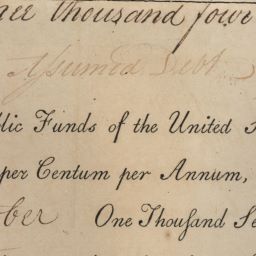 ree thousand four
Assumed Debt
lic Funds of the United S
per Centum per Annum,
ber One Thouſand Se